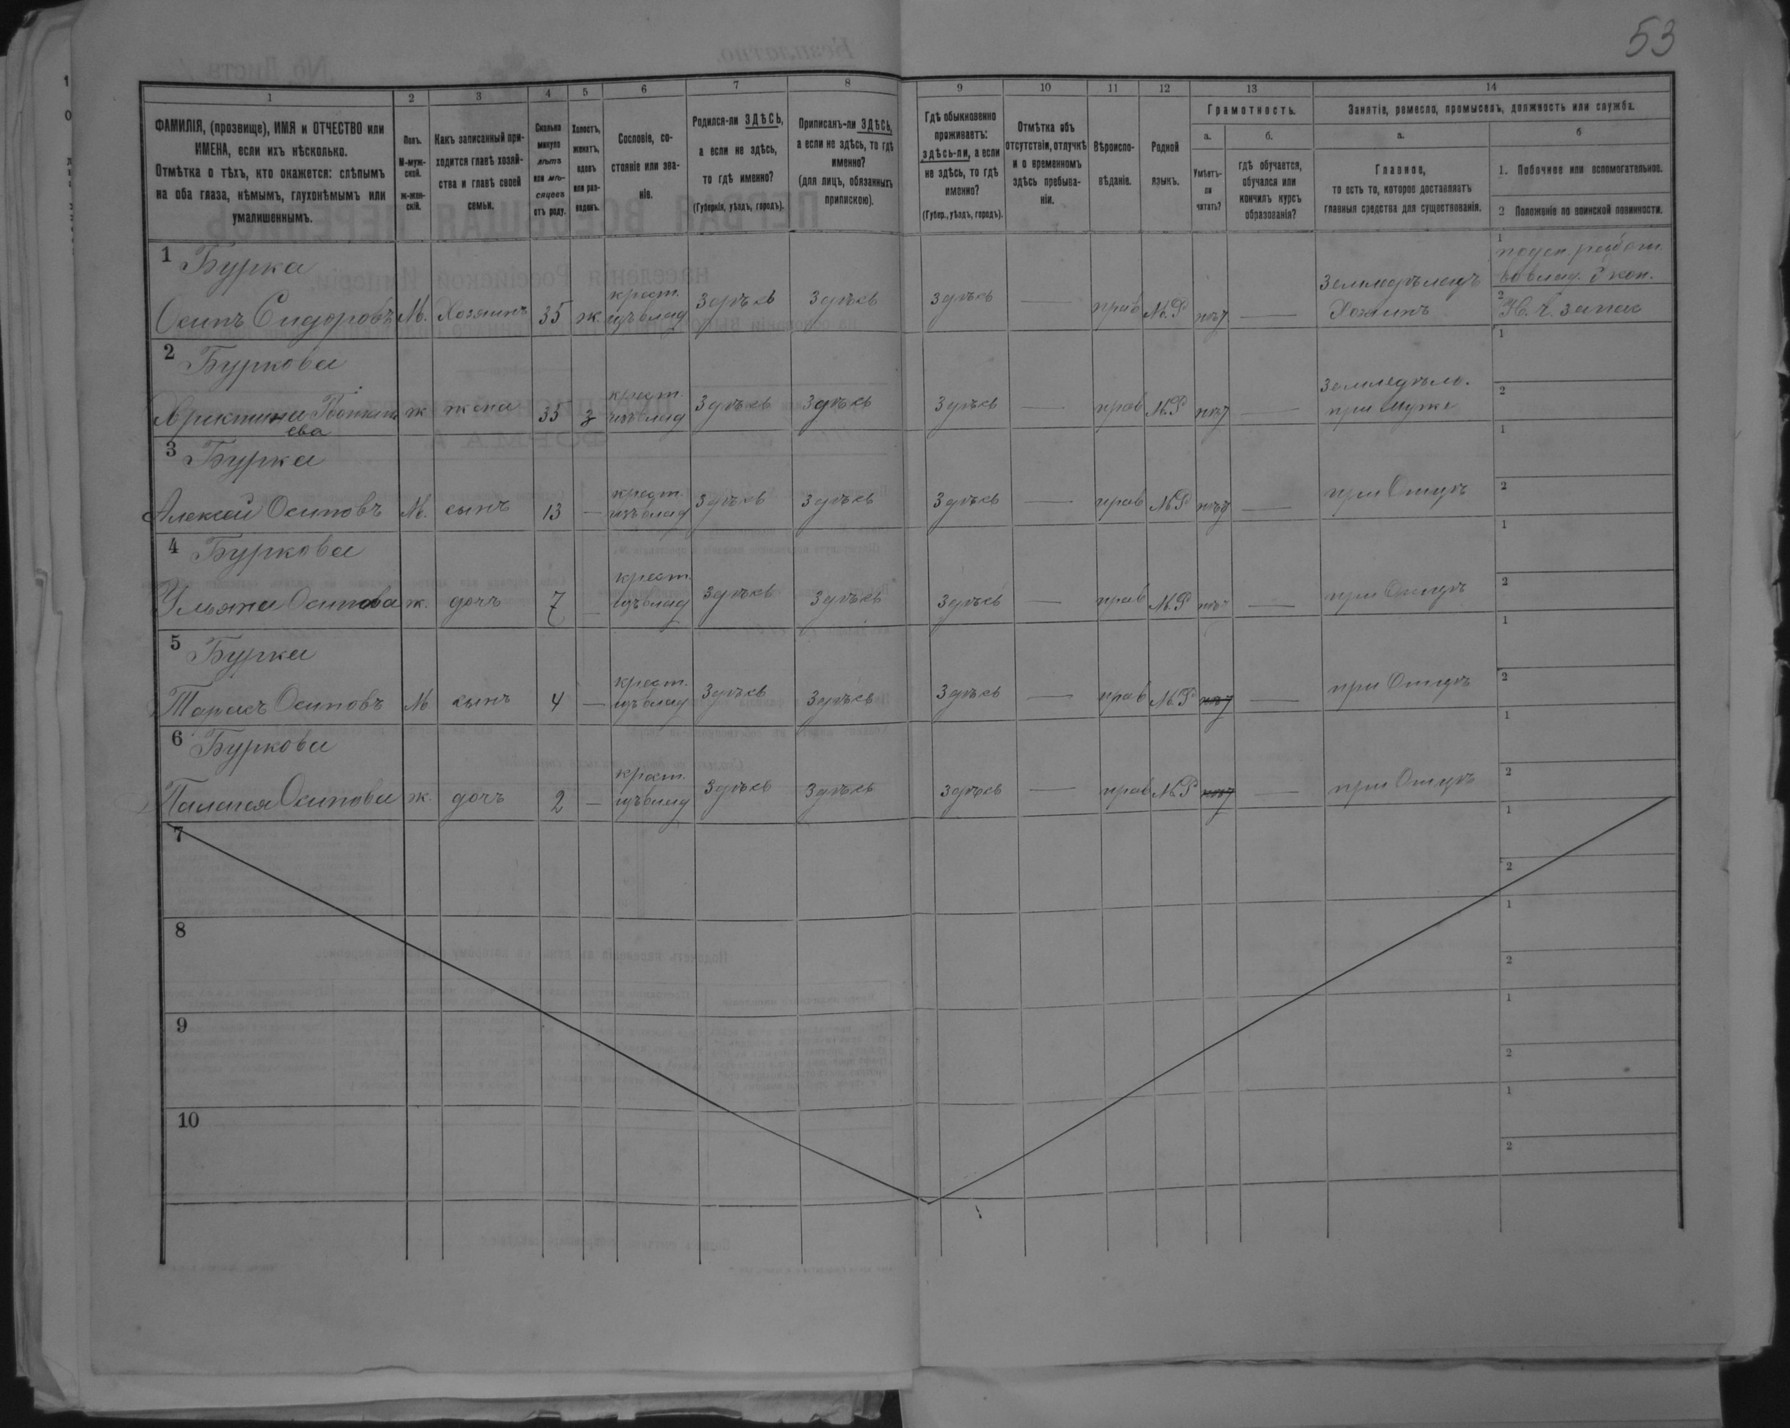 53
1
2
3
4
5
6
7
8
9
10
11
12
13
14
ФАМИЛІЯ, (прозвище), ИМЯ и ОТЧЕСТВО или
ИМЕНА, если ихъ нѣсколько.
Отмѣтка о тѣхъ, кто окажется: слѣпымъ
на оба глаза, нѣмымъ, глухонѣмымъ или
умалишеннымъ.
Полъ.
М-муж-
ской.
ж-жен-
скій.
Какъ записанный при-
ходится главѣ хозяй-
ства и главѣ своей
семьи.
Сколько
минуло
лѣтъ
или мѣ-
сяцевъ
отъ роду.
Холостъ,
женатъ,
вдовъ
или раз-
веденъ.
Сословіе, со-
стояніе или зва-
ніе.
Родился-ли ЗДѢСЬ,
а если не здѣсь,
то гдѣ именно?
(Губернія, уѣздъ, городъ).
Приписанъ-ли ЗДѢСЬ,
а если не здѣсь, то гдѣ
именно?
(для лицъ, обязанныхъ
припискою).
Гдѣ обыкновенно
проживаетъ:
здѣсь-ли, а если
не здѣсь, то гдѣ
именно?
(Губер., уѣздъ, городъ).
Отмѣтка объ
отсутствіи, отлучкѣ
и о временномъ
здѣсь пребыва-
ніи.
Вѣроиспо-
вѣданіе.
Родной
языкъ.
Грамотность.
а.
Умѣетъ-
ли
читать?
б.
гдѣ обучается,
обучался или
кончилъ курсъ
образованія?
Занятіе, ремесло, промыселъ, должность или служба.
а.
Главное,
то есть то, которое доставляетъ
главныя средства для существованія.
б
1. Побочное или вспомогательное.
2 Положеніе по воинской повинности.
1 Бурка
Осипъ Сидоровъ М. Хозяинъ 35 ж. крест. изъ влад Здѣсь Здѣсь Здѣсь — прав М.Р нѣт — Земледѣлецъ Хозяинъ
1
2 запас
2 Буркова
ева ж жена 35 з крест изъ влад Здѣсь Здѣсь Здѣсь — прав М.Р нѣт — Земледѣло. при мужѣ
1
2
3 Бурка
Алексей Осиповъ М. сынъ 13 — крест. изъ влад Здѣсь Здѣсь Здѣсь — прав М.Р нѣт — при Отцѣ
1
2
4 Буркова
Ульяна Осипова ж. дочъ 7 — крест. изъ влад Здѣсь Здѣсь Здѣсь — прав М.Р нѣт — при Отцѣ
1
2
5 Бурка
Тарасъ Осиповъ М сынъ 4 — крест. изъ влад Здѣсь Здѣсь Здѣсь — прав М.Р нѣт — при Отцѣ
1
2
6 Буркова
Осипова ж. дочъ 2 — крест. изъ влад Здѣсь Здѣсь Здѣсь — прав М.Р нѣт — при Отцѣ
1
2
7
1
2
8
1
2
9
1
2
10
1
2